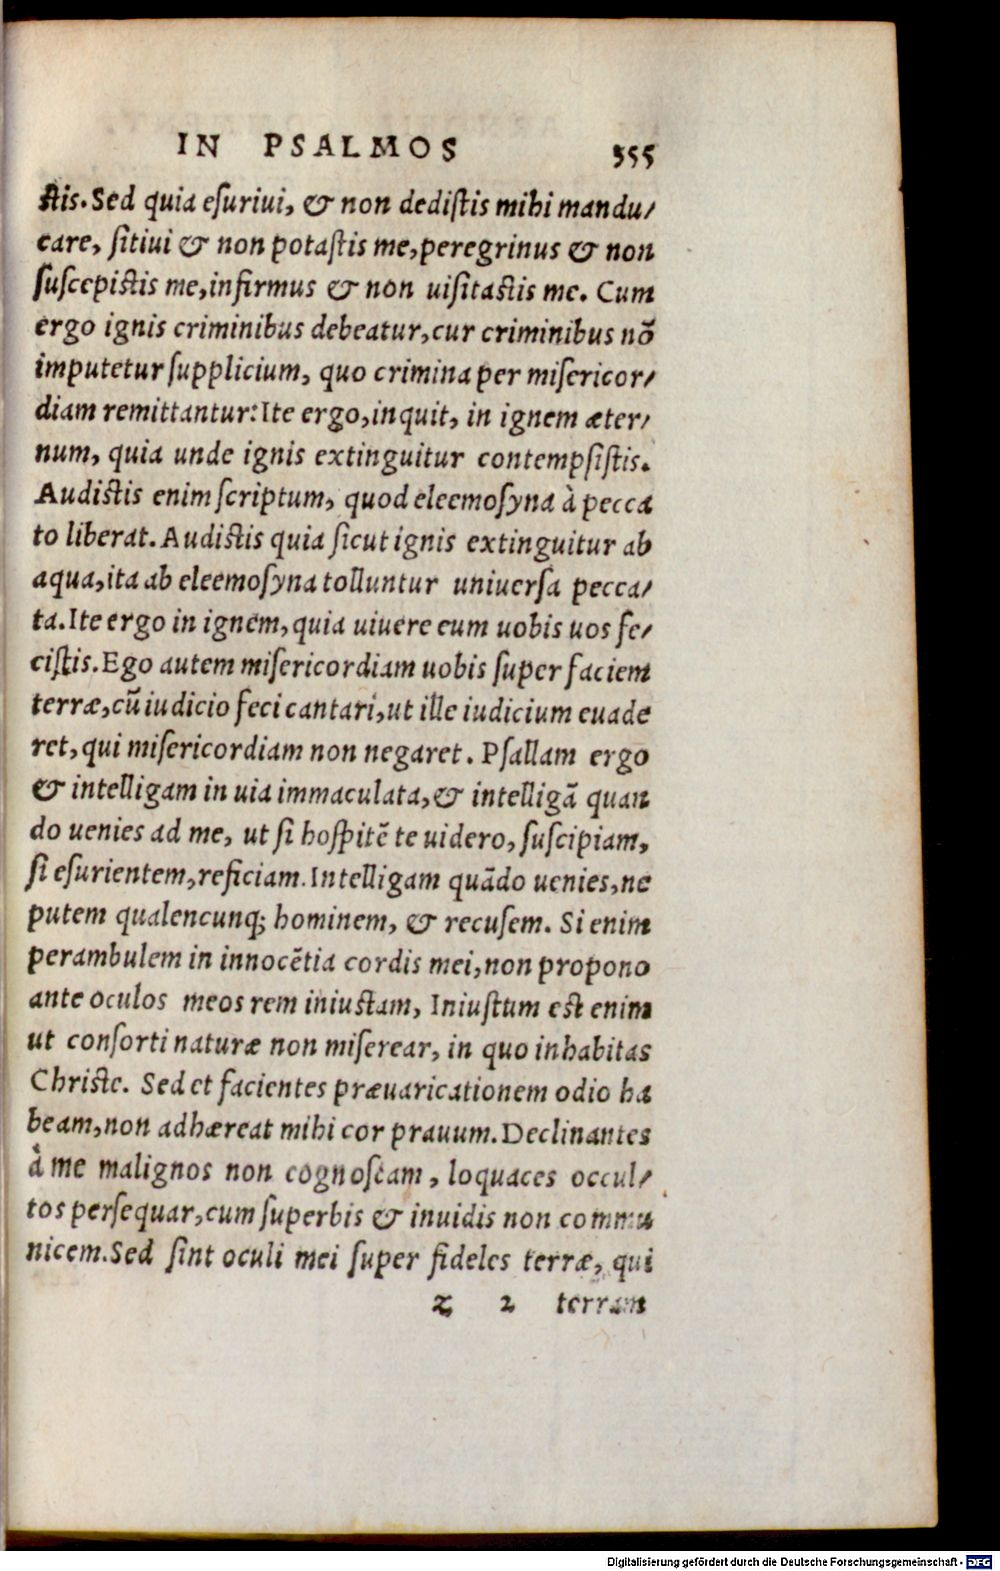 IN PSALMOS 355
ſtis. Sed quia eſuriui, & non dediſtis mihi mandu/
care, ſitiui & non potaſtis me, peregrinus & non
ſuſcepiſtis me, infirmus & non uiſitaſtis me. Cum
ergo ignis criminibus debeatur, cur criminibus nō
imputetur ſupplicium, quo crimina per miſericor/
diam remittantur: Ite ergo, inquit, in ignem æter/
num, quia unde ignis extinguitur contempſiſtis.
Audiſtis enim ſcriptum, quod eleemoſyna à pecca
to liberat. Audiſtis quia ſicut ignis extinguitur ab
aqua, ita ab eleemoſyna tolluntur uniuerſa pecca/
ta. Ite ergo in ignem, quia uiuere eum uobis uos fe/
ciſtis. Ego autem miſericordiam uobis ſuper faciem
terræ, cū iudicio feci cantari, ut ille iudicium euade
ret, qui miſericordiam non negaret. Pſallam ergo
& intelligam in uia immaculata, & intelligā quan
do uenies ad me, ut ſi hoſpitē te uidero, ſuſcipiam,
ſi eſurientem, reficiam. Intelligam quādo uenies, ne
putem qualencunq; hominem, & recuſem. Si enim
perambulem in innocētia cordis mei, non propono
ante oculos meos rem iniuſtam, Iniuſtum eſt enim
ut conſorti naturæ non miſerear, in quo inhabitas
Chriſte. Sed et facientes præuaricationem odio ha
beam, non adhæreat mihi cor prauum. Declinantes
à me malignos non cognoſcam, loquaces occul/
tos perſequar, cum ſuperbis & inuidis non commu
nicem. Sed ſint oculi mei ſuper fideles terræ, qui
z 2 terram
Digitalisierung gefördert durch die Deutsche Forschungsgemeinschaft - DFG